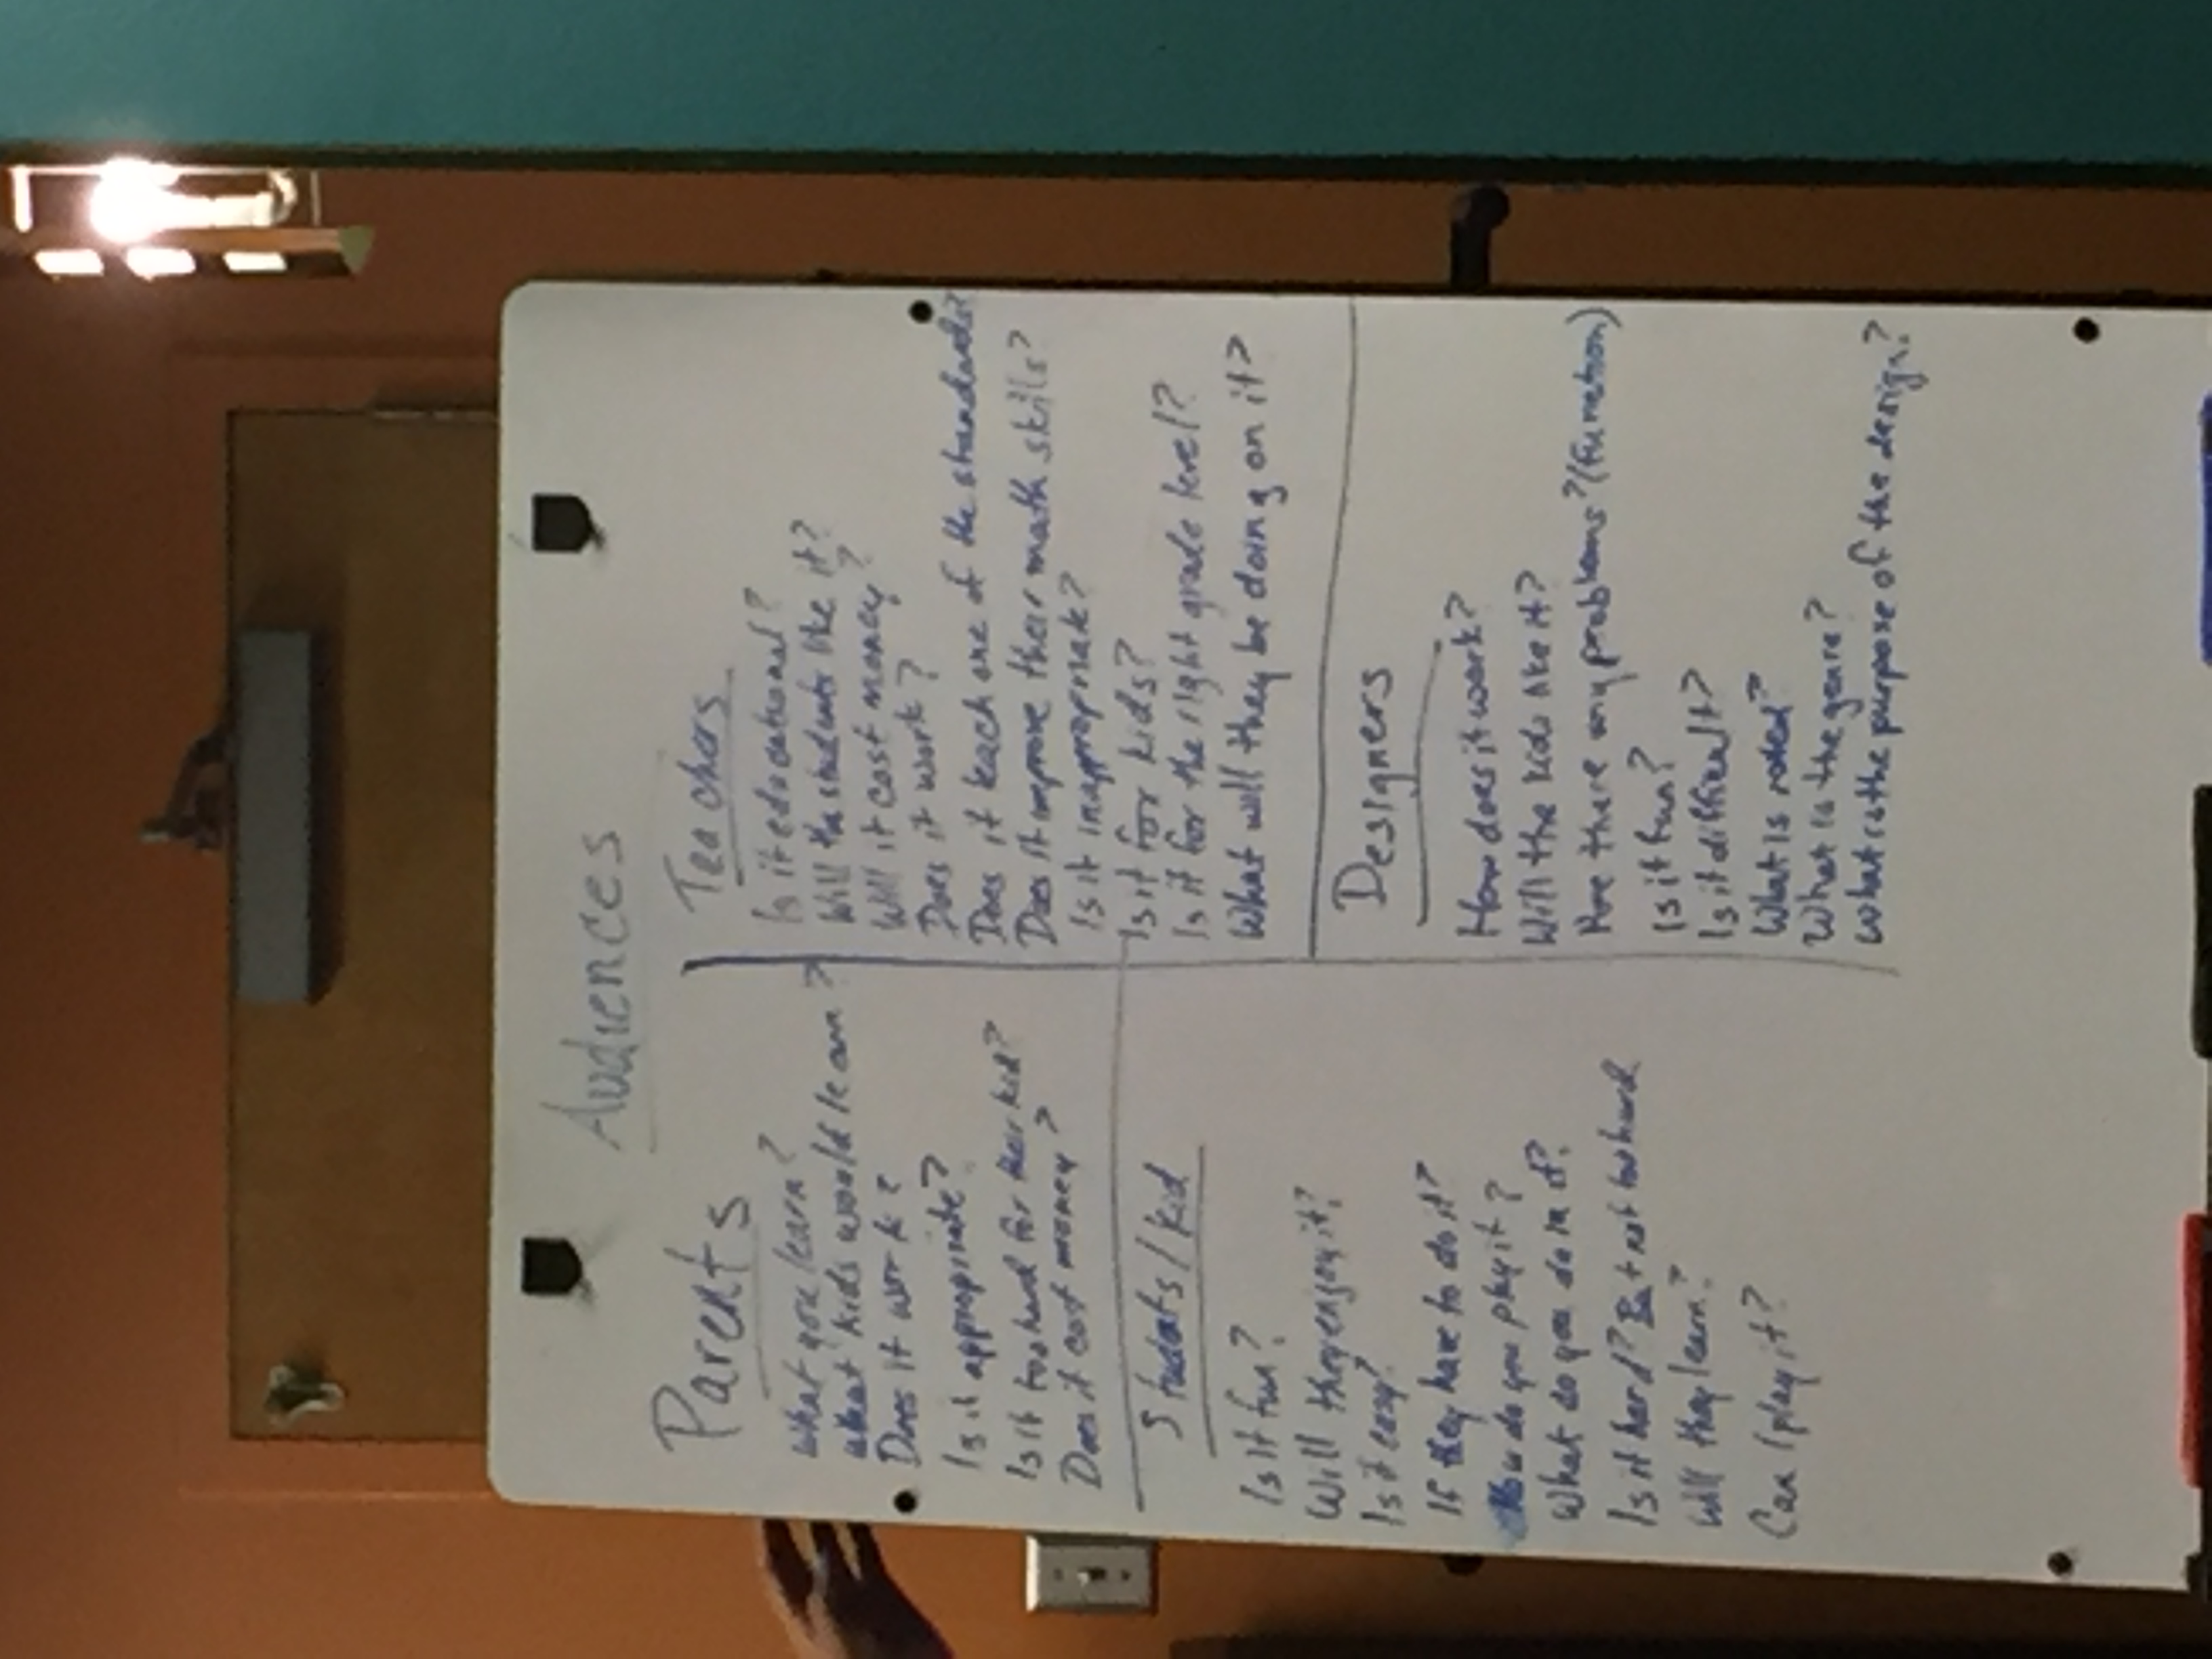 Audiences
Parents
What you learn?
what kids would learn?
Does it work?
Is it appropriate?
Is it too hard for their kid?
Does it cost money?
Students/kid
Is it fun?
Will they enjoy it?
Is it easy?
If they have to do it?
How do you play it?
What do you do in it?
Is it hard? But not too hard
Will they learn?
Can I play it?
Teachers
Is it educational?
Will the students like it?
Will it cost money?
Does it work?
Does it teach one of the standards?
Does it improve their math skills?
Is it inappropriate?
Is it for kids?
Is it for the right grade level?
What will they be doing on it?
Designers
How does it work?
Will the kids like it?
Are there any problems? (function)
Is it fun?
Is it difficult?
What is rated?
What is the genre?
What is the purpose of the design?